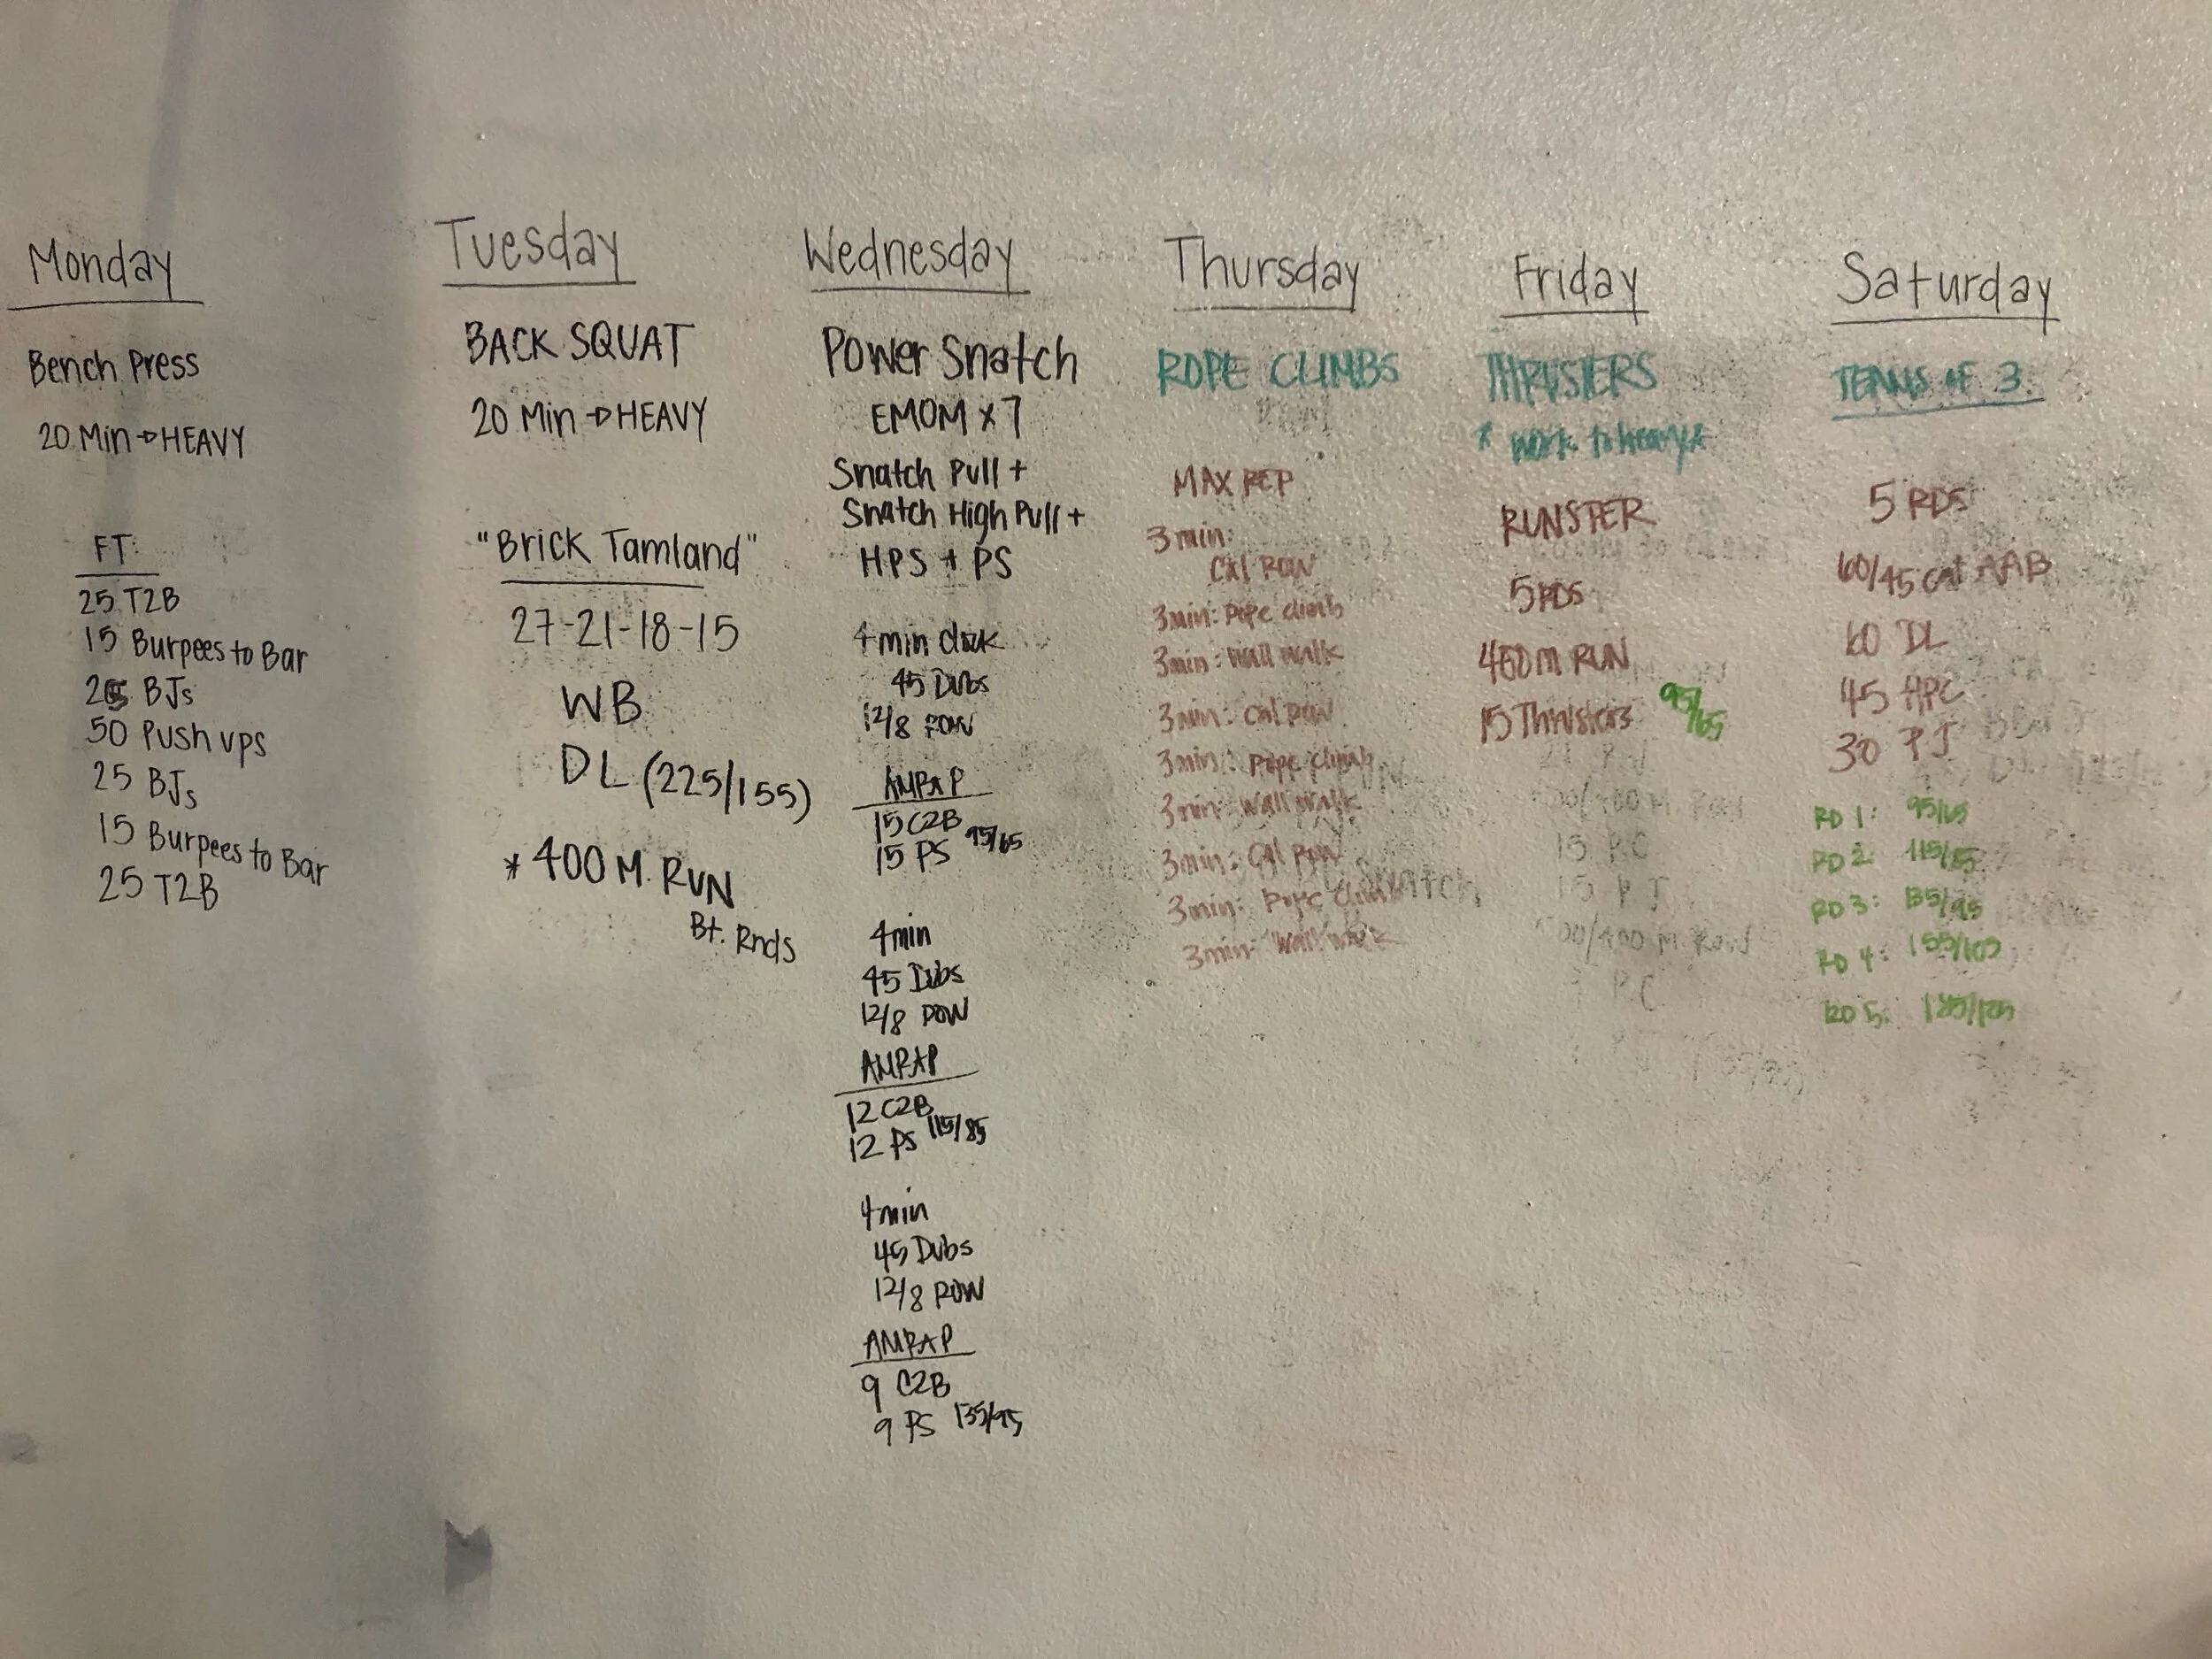 Monday
Bench Press
20 Min → HEAVY
FT:
25 T2B
15 Burpees to Bar
25 BJs
50 Push ups
25 BJs
15 Burpees to Bar
25 T2B
Tuesday
BACK SQUAT
20 Min → HEAVY
"Brick Tamland"
27-21-18-15
WB
DL (225/155)
* 400 M. RUN
Bt. Rnds
Wednesday
Power Snatch
EMOM x 7
Snatch Pull +
Snatch High Pull +
HPS + PS
4 min clock
45 Dubs
12/8 ROW
AMRAP
15 C2B
15 PS 95/65
4min
45 Dubs
12/8 ROW
AMRAP
12 C2B
12 PS 115/85
4min
45 Dubs
12/8 ROW
AMRAP
9 C2B
9 PS 135/95
Thursday
ROPE CLIMBS
MAX REP
3 min:
Cal ROW
3min: Rope climb
3min: Wall walk
3min: Cal ROW
3min: Rope climb
3min: Wall walk
3min: Cal Row
3min: Rope climb
3min: Wall walk
Friday
THRUSTERS
* Work to heavy *
RUNSTER
5 RDS
400m RUN
15 Thrusters 95/65
15 PC
15 PJ
PC
Saturday
TEAMS OF 3
5 RDS
60/45 cal AAB
60 DL
45 HPC
30 PJ
RD 1: 95/65
RD 2: 115/85
RD 3: 135/95
RD 4: 155/105
RD 5: 185/125